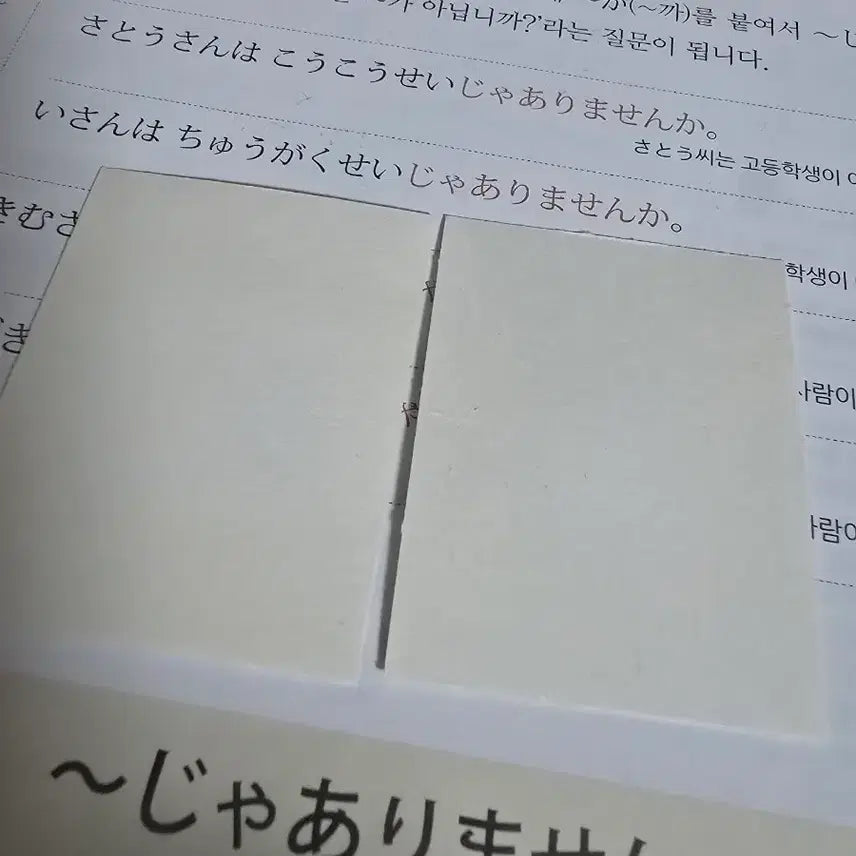 아닙니까?'라는 질문이 됩니다.
(~까)를 붙여서 ~
さとうさんは こうこうせいじゃありませんか。
さとう씨는 고등학생이
いさんは ちゅうがくせいじゃありませんか。
학생이
きむさ
사람이
き
사람이
~じゃありません